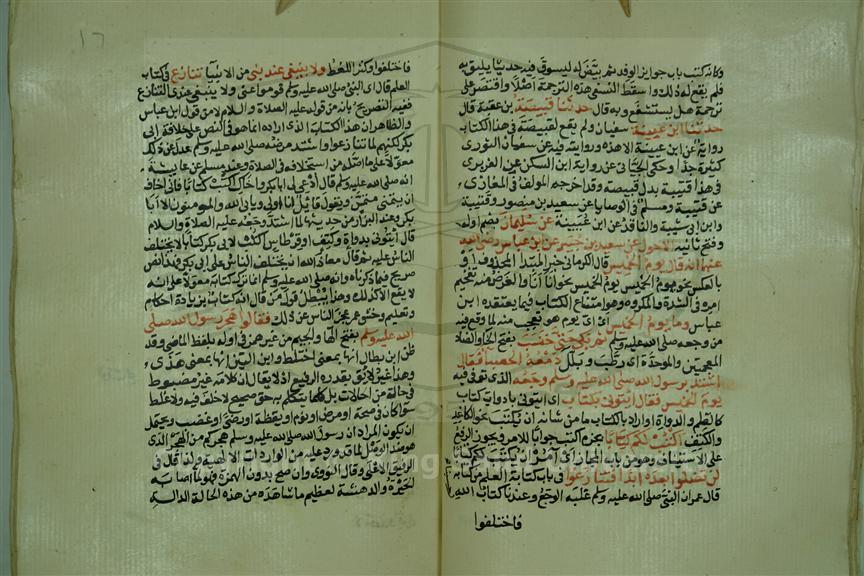 وكانه كتب باب جوايز الوفد ثم بيض له ليسوق فيه حديثا يليق به
فلم يقع له ذلك واسقط النسفي هذه الترجمة اصلا واقتصر على
ترجمة هل يستشفع وبه قال حدثنا قبيصة بن عقبة قال
حدثنا ابن عيينة سفيان ولم يقع لقبيصة في هذا الكتاب
رواية عن ابن عيينة الا هذه وروايته فيه عن سفيان الثوري
كثيرة جدا وحكى الجياني عن رواية ابن السكن عن الفربري
في هذا قتيبة بدل قبيصة وقد اخرجه المولف في المغازي
عن قتيبة ومسلم في الوصايا عن سعيد بن منصور وقتيبة
وابن ابي شيبة والناقد عن ابن عيينة عن سليمان بضم اوله
وفتح ثانيه الاحول عن سعيد بن جبير عن ابن عباس رضي الله
عنهما انه قال يوم الخميس قال الكرماني خبر المبتدا المحذوف او
بالعكس نحو يوم الخميس يوم الخميس نحو انا انا والغرض منه تفخيم
امره في الشدة والمكروه وهو امتناع الكتاب فيما يعتقده ابن
عباس وما يوم الخميس اي اي يوم هو تعجب منه لما وقع فيه
من وجعه صلى الله عليه وسلم ثم بكى حتى خضب بفتح الخا والضاد
المعجمتين والموحدة اي رطب وبلل دمعه الحصبا فقال
اشتد برسول الله صلى الله عليه وسلم وجعه الذي توفي فيه
يوم الخميس فقال ايتوني بكتاب اي ايتوني بادوات كتاب
كالقلم والدواة او اراد بالكتاب ما من شانه ان يكتب نحو الكاغد
والكتف اكتب لكم كتابا بجزم اكتب جوابا للامر ويجوز الرفع
على الاستيناف وهو من باب المجاز اي آمر ان يكتب لكم كتابا
لن تضلوا بعده ابدا فتنازعوا في باب كتابة العلم من كتابه
قال عمر ان النبي صلى الله عليه وسلم غلبه الوجع وعندنا كتاب الله
فاختلفوا
١٦
فاختلفوا وكثر اللغط ولا ينبغي عند نبي من الانبيا تنازع في كتاب
العلم قال اي النبي صلى الله عليه وسلم قوموا عني ولا ينبغي عندي التنازع
ففيه التصريح بانه من قوله عليه الصلاة والسلام لا من قول ابن عباس
والظاهر ان هذا الكتاب الذي اراده انما هو في النص على خلافة ابي
بكر لكنهم لما تنازعوا واشتد مرضه صلى الله عليه وسلم عدل عن ذلك
معولا على ما اصله من استخلافه في الصلاة وعند مسلم عن عايشة
انه صلى الله عليه وسلم قال ادعي لي ابا بكر واخاك اكتب كتابا فاني اخاف
ان يتمنى متمن ويقول قايل انا اولى ويابى الله والمومنون الا ابا
بكر وعند البزار من حديثها لما اشتد وجعه عليه الصلاة والسلام
قال ايتوني بدواة وكتف او قرطاس اكتب لابي بكر كتابا لا يختلف
الناس عليه ثم قال معاذ الله ان يختلف الناس على ابي بكر فهذا نص
صريح فيما ذكرناه وانه صلى الله عليه وسلم انما ترك كتابه معولا على انه
لا يقع الا كذلك وهذا يبطل قول من قال انه كتاب بزيادة احكام
وتعليم وخشي عمر عجز الناس عن ذلك فقالوا هجر رسول الله صلى
الله عليه وسلم بفتح الها والجيم من غير همز في اوله بلفظ الماضي وقد
ظن ابن بطال انها بمعنى اختلط وابن التين انها بمعنى هذى
وهذا غير لايق بقدره الرفيع اذ لا يقال ان كلامه غير مضبوط
في حالة من الحالات بل كل ما يتكلم به حق صحيح لا خلف فيه ولا غلط
سوا كان في صحة او مرض او نوم او يقظة او رضى او غضب ويحتمل
ان يكون المراد ان رسول الله صلى الله عليه وسلم هجركم من الهجر الذي
هو ضد الوصل لما قد ورد عليه من الواردات الالهية ولذا قال في
الرفيق الاعلى وقال النووي وان صح بدون الهمزة فهو لما اصابه
الحيرة والدهشة لعظيم ما شاهده من هذه الحالة الدالة